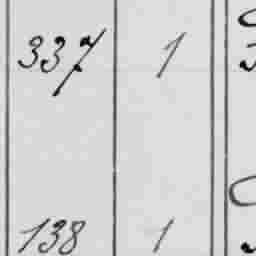 337 1
138 1